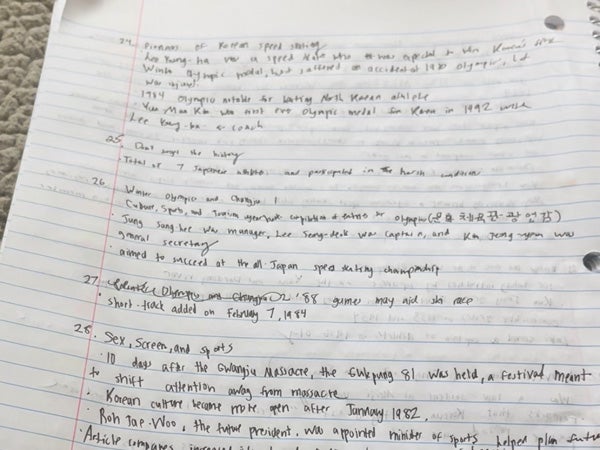 24. Pioneers of Korean speed skating
Lee Young-ha was a speed skater who was expected to win Korea's first
Winter Olympic medal, but suffered an accident at 1980 Olympic, but
was injured
1984 Olympic notable for beating North Korean athlete
Yun Man Kim won first ever Olympic medal for Korea in 1992 with
Lee Young-ha a coach
25. Don't forget the history
Total of 7 Japanese athletes and participated in the harsh conditions
26. Winter Olympics and Chongjin 1
Culture, Sports, and Tourism yearbook of Olympics
Jung Sung-hee was manager, Lee Seong-deok was captain, and Kim Jeong-yeon was
general secretary
· aimed to succeed at the all Japan speed skating championship
27. '88 games may aid ski race
· short-track added on February 7, 1984
28. Sex, Screen, and Sports
· 10 days after the Gwangju Massacre, the Gukpung 81 was held, a festival meant
to shift attention away from massacre
· Korean culture became more open after January 1982,
· Roh Tae-Woo, the future president, was appointed minister of sports helped plan future
· Article compares increased